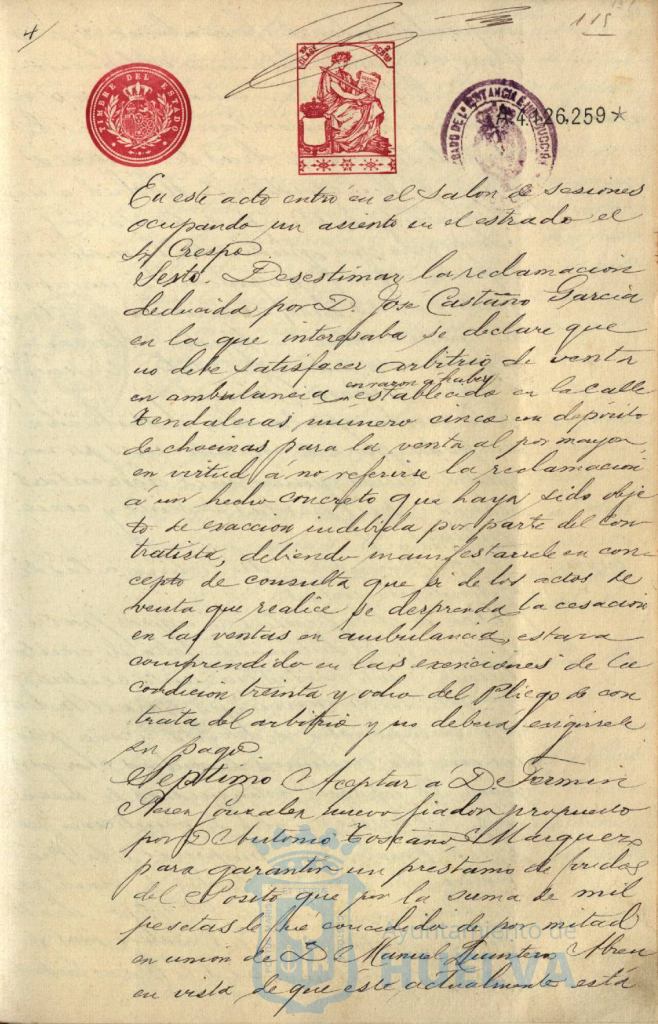 4
115
TIMBRE DEL ESTADO
CLASE
A4.126.259*
En este acto entró en el salon de sesiones
ocupando un asiento en el estrado el
Sr Crespo
Sesto. Desestimar la reclamacion
deducida por D. José Castaño Garcia
en la que interesaba se declare que
no debe satisfacer arbitrio de venta
en ambulancia en razon á haber establecido en la calle
Tendaleras número cinco un deposito
de chacinas para la venta al por mayor,
en virtud á no referirse la reclamacion
á un hecho concreto que haya sido obje
to de exaccion indebida por parte del con
tratista, debiendo manifestarsele en con
cepto de consulta que si de los actos de
venta que realice se desprenda la cesacion
en las ventas en ambulancia, estará
comprendido en las exenciones de la
condicion treinta y ocho del Pliego de con
trata del arbitrio y no deberá exigirsele
su pago
Septimo Aceptar á D. Fermin
Perez Gonzalez nuevo fiador propuesto
por D Antonio Toscano Marquez
para garantir un prestamo de fondos
del Posito que por la suma de mil
pesetas le fue concedido de por mitad
en union de D Manuel Quintero Abreu
en vista de que este actualmente está
Ayuntamiento de
HUELVA